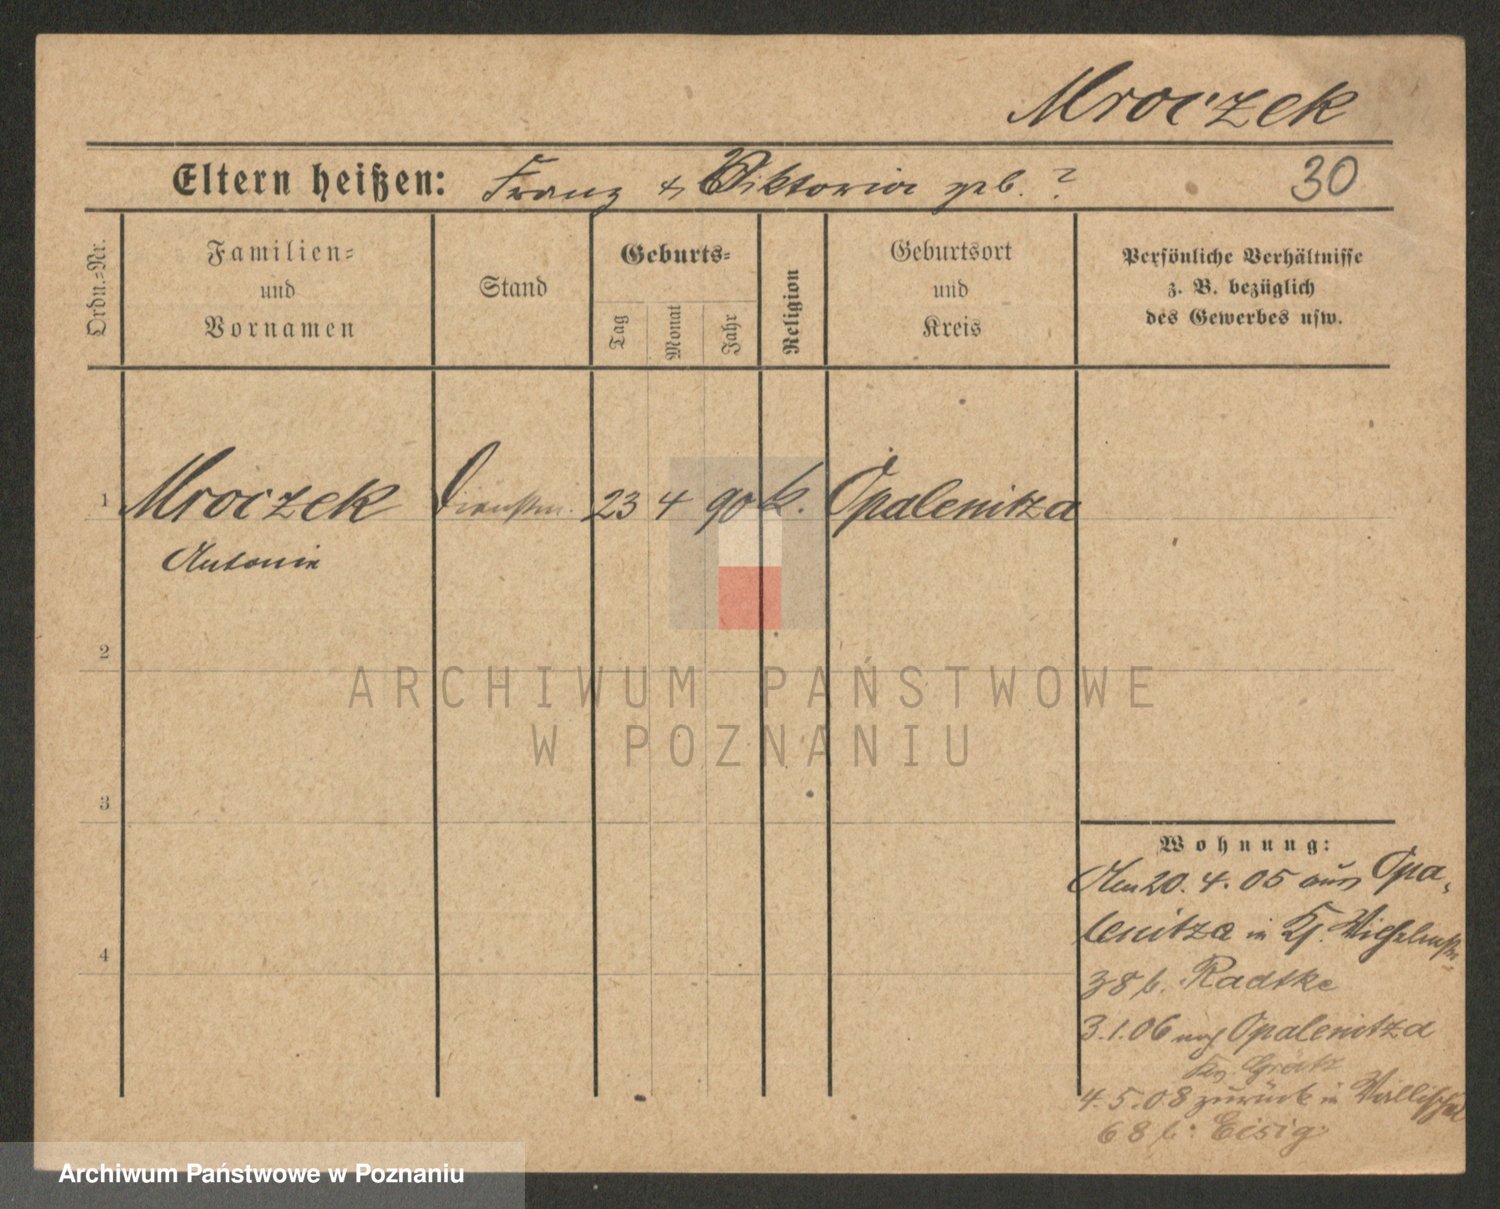 Mroczek
Eltern heißen: Franz & Viktoria geb. ?
30
Ordn.=Nr.
Familien=
und
Vornamen
Stand
Geburts=
Tag
Monat
Jahr
Religion
Geburtsort
und
Kreis
Persönliche Verhältnisse
z. B. bezüglich
des Gewerbes usw.
1 Mroczek Dienstm. 23 4 90 k. Opalenitza
Antonie
2
ARCHIWUM PAŃSTWOWE
W POZNANIU
3
Wohnung:
20.4.05 aus Opa-
lenitza in Wilhelmstr.
38 b. Radtke
4
3.1.06 nach Opalenitza
Kr. Grätz
4.5.08 zurück in Wallischei
68 b. Eisig
Archiwum Państwowe w Poznaniu